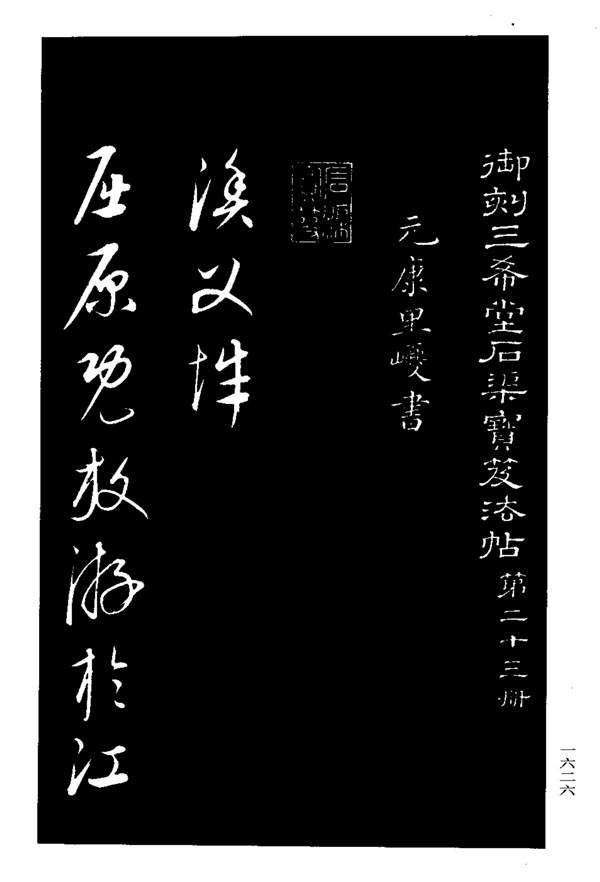 御刻三希堂石渠寶笈法帖 第二十三册
元康里巎書
漁父辭
屈原既放游於江
一六二六